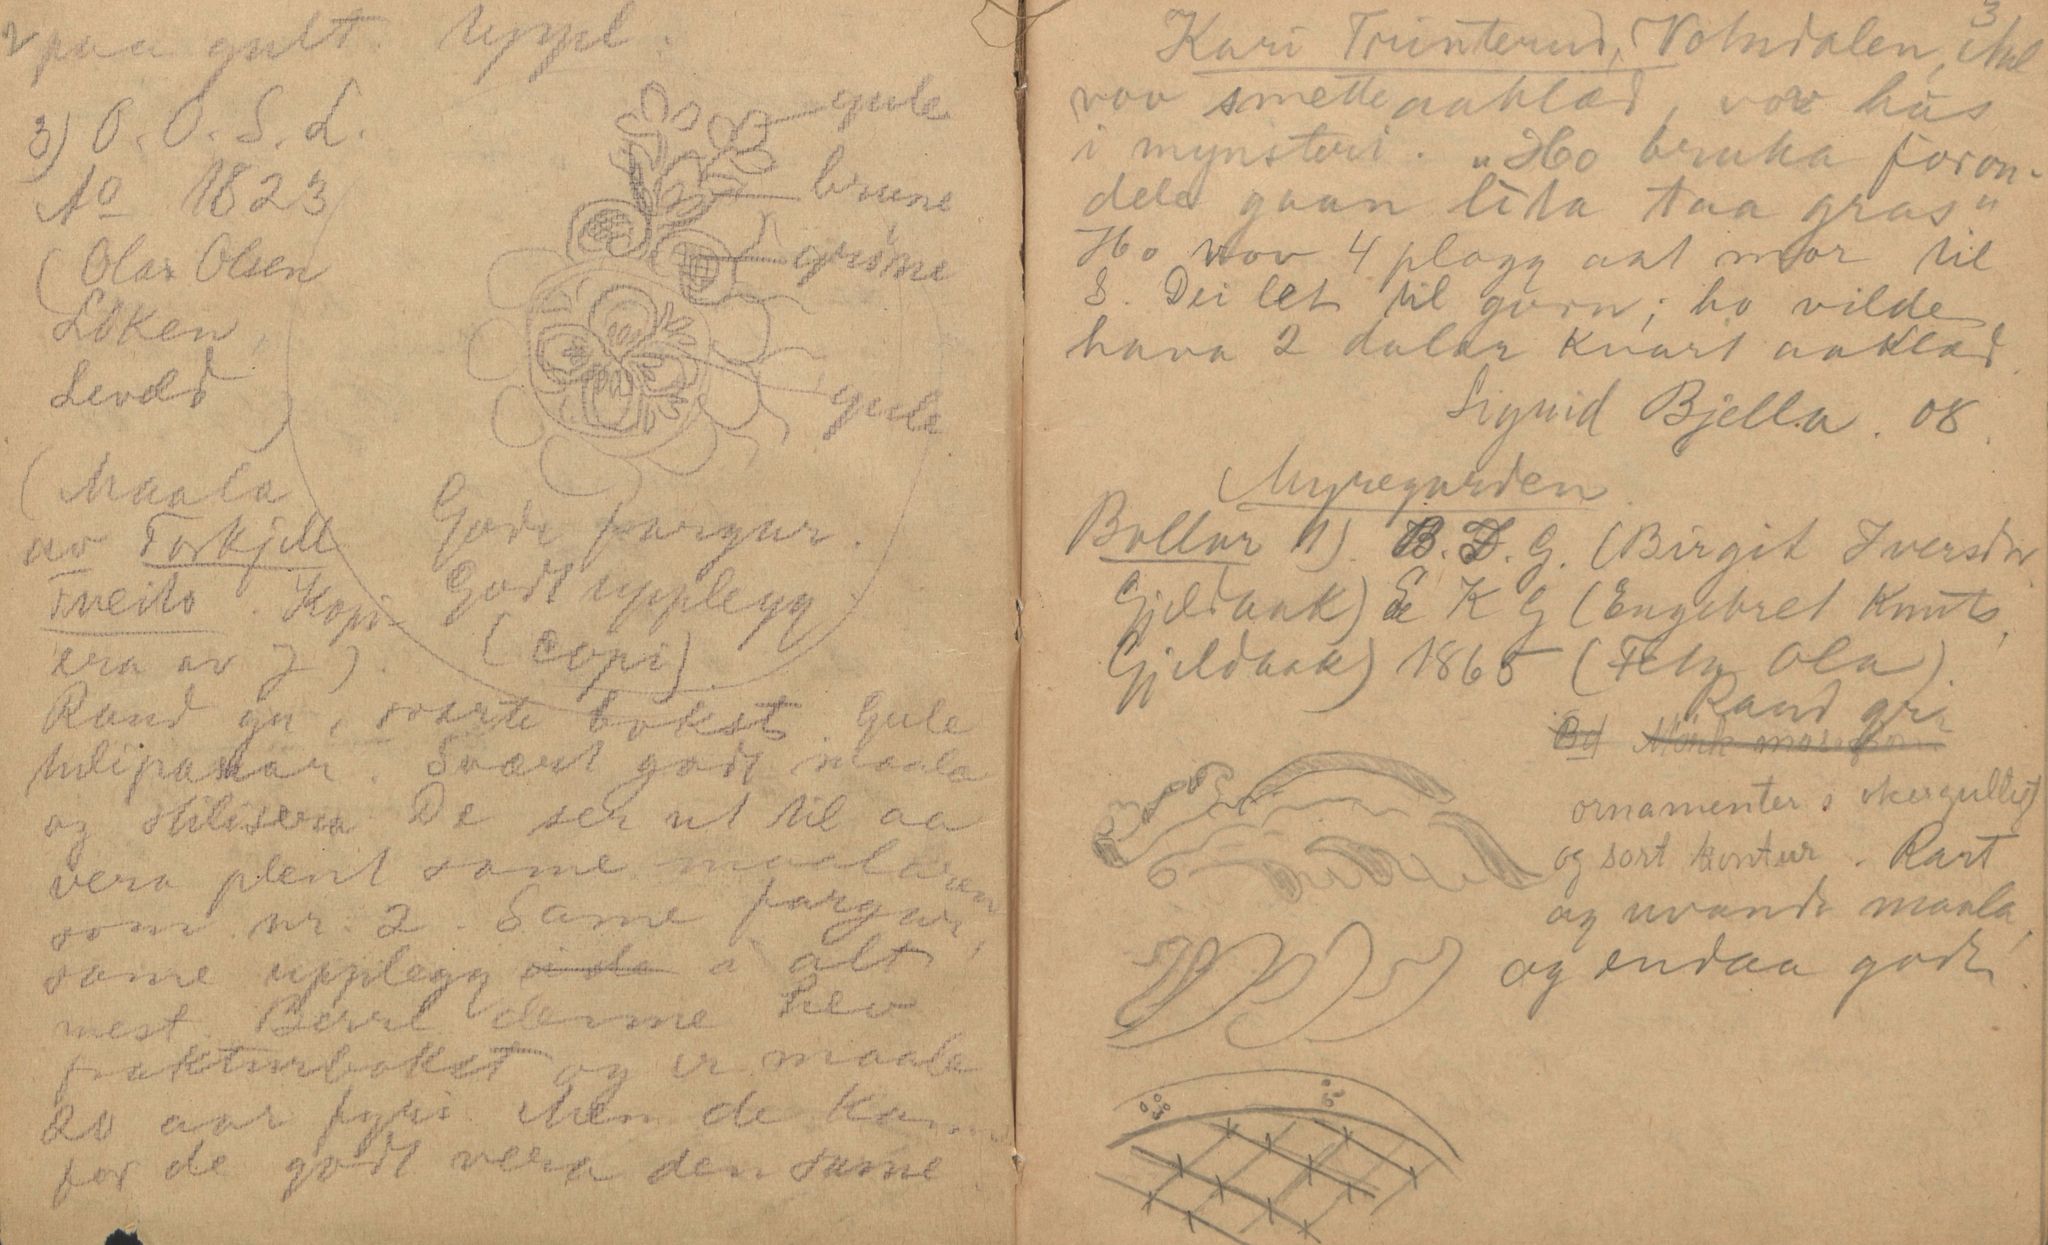 2
paa gult. Uppl.
3) O. O. S. L.
No 1823
(Olav Olsen
Løken,
Levold
gule
brune
grøne
gule
(Maala
av Torkjell
Tveito. Kopi-
era av J).
Gode fargur.
Godt upplegg
(copi)
Rand gu, svarte bokst. Gule
tulipanar. Svært godt maala
og stilisera De ser ut til aa
vera plent same maalaren
som nr. 2. Same fargur,
same upplegg i alt
mest. Berre denne hev
frakturbokst og er maala
20 aar fyri. Men de kan
for de godt vera den same.
3
Kari Trinterud, Votndalen, Aal
vov smetteaaklæd, vov hus
i mynsteri. "Ho bruka foron-
dele gaan lita taa gras"
Ho vov 4 plagg aat mor til
S. Dei let til garn; ho vilde
hava 2 dalar kvart aaklæd.
Sigrid Bjella. 08.
Myregarden.
Bollar 1). B. I. G. (Birgit Iversdtr
Gjeldaak) E K G (Engebret Knuts.
Gjeldaak) 1865 (Feta Ola).
Rand gr
Mørk
ornamenter i okergult
og sort kontur. Rart
og uvande maala,
og endaa godt.